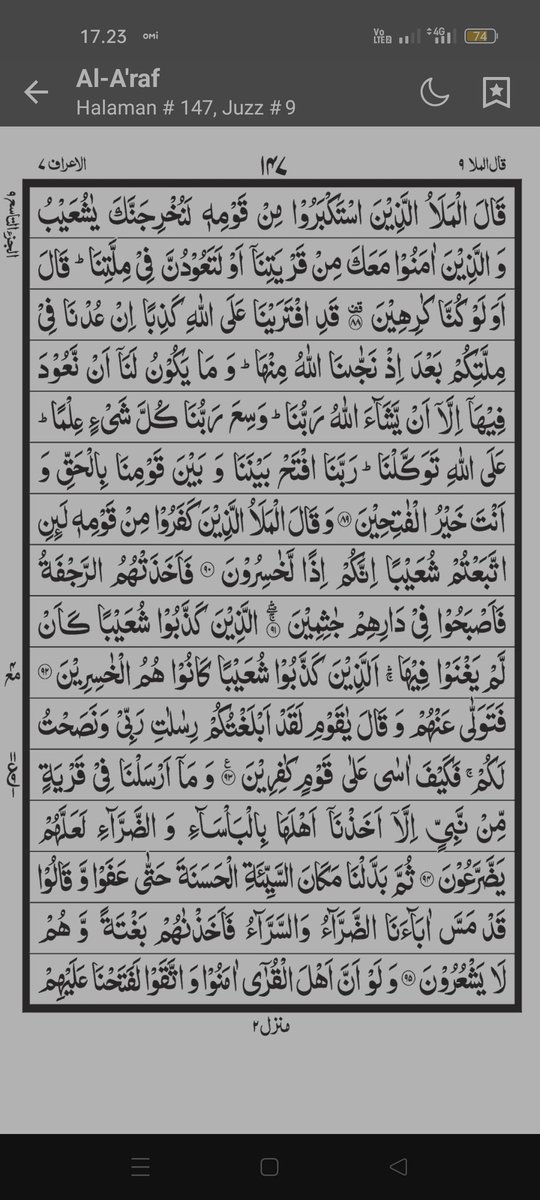 17.23 omi Vo LTE2 4G 74
Al-A'raf
Halaman # 147, Juzz # 9
قال الملا ۹ ۱۴۷ الاعراف ۷
الجزء التاسع ۹
قَالَ الْمَلَاُ الَّذِيْنَ اسْتَكْبَرُوْا مِنْ قَوْمِهٖ لَنُخْرِجَنَّكَ يٰشُعَيْبُ
وَ الَّذِيْنَ اٰمَنُوْا مَعَكَ مِنْ قَرْيَتِنَاۤ اَوْ لَتَعُوْدُنَّ فِيْ مِلَّتِنَا ؕ قَالَ
اَوَ لَوْ كُنَّا كٰرِهِيْنَ ۟ۚ۸۸ قَدِ افْتَرَيْنَا عَلَى اللّٰهِ كَذِبًا اِنْ عُدْنَا فِيْ
مِلَّتِكُمْ بَعْدَ اِذْ نَجّٰىنَا اللّٰهُ مِنْهَا ؕ وَ مَا يَكُوْنُ لَنَاۤ اَنْ نَّعُوْدَ
فِيْهَاۤ اِلَّاۤ اَنْ يَّشَآءَ اللّٰهُ رَبُّنَا ؕ وَسِعَ رَبُّنَا كُلَّ شَيْءٍ عِلْمًا ؕ
عَلَى اللّٰهِ تَوَكَّلْنَا ؕ رَبَّنَا افْتَحْ بَيْنَنَا وَ بَيْنَ قَوْمِنَا بِالْحَقِّ وَ
اَنْتَ خَيْرُ الْفٰتِحِيْنَ ۸۹ وَ قَالَ الْمَلَاُ الَّذِيْنَ كَفَرُوْا مِنْ قَوْمِهٖ لَىِٕنِ
اتَّبَعْتُمْ شُعَيْبًا اِنَّكُمْ اِذًا لَّخٰسِرُوْنَ ۹۰ فَاَخَذَتْهُمُ الرَّجْفَةُ
فَاَصْبَحُوْا فِيْ دَارِهِمْ جٰثِمِيْنَ ۹۱ الَّذِيْنَ كَذَّبُوْا شُعَيْبًا كَاَنْ
لَّمْ يَغْنَوْا فِيْهَا ۚ اَلَّذِيْنَ كَذَّبُوْا شُعَيْبًا كَانُوْا هُمُ الْخٰسِرِيْنَ ۹۲
فَتَوَلّٰى عَنْهُمْ وَ قَالَ يٰقَوْمِ لَقَدْ اَبْلَغْتُكُمْ رِسٰلٰتِ رَبِّيْ وَ نَصَحْتُ
لَكُمْ ۚ فَكَيْفَ اٰسٰى عَلٰى قَوْمٍ كٰفِرِيْنَ ۹۳ وَ مَاۤ اَرْسَلْنَا فِيْ قَرْيَةٍ
مِّنْ نَّبِيٍّ اِلَّاۤ اَخَذْنَاۤ اَهْلَهَا بِالْبَاْسَآءِ وَ الضَّرَّآءِ لَعَلَّهُمْ
يَضَّرَّعُوْنَ ۹۴ ثُمَّ بَدَّلْنَا مَكَانَ السَّيِّئَةِ الْحَسَنَةَ حَتّٰى عَفَوْا وَّ قَالُوْا
قَدْ مَسَّ اٰبَآءَنَا الضَّرَّآءُ وَ السَّرَّآءُ فَاَخَذْنٰهُمْ بَغْتَةً وَّ هُمْ
لَا يَشْعُرُوْنَ ۹۵ وَ لَوْ اَنَّ اَهْلَ الْقُرٰۤى اٰمَنُوْا وَ اتَّقَوْا لَفَتَحْنَا عَلَيْهِمْ
منزل ۲